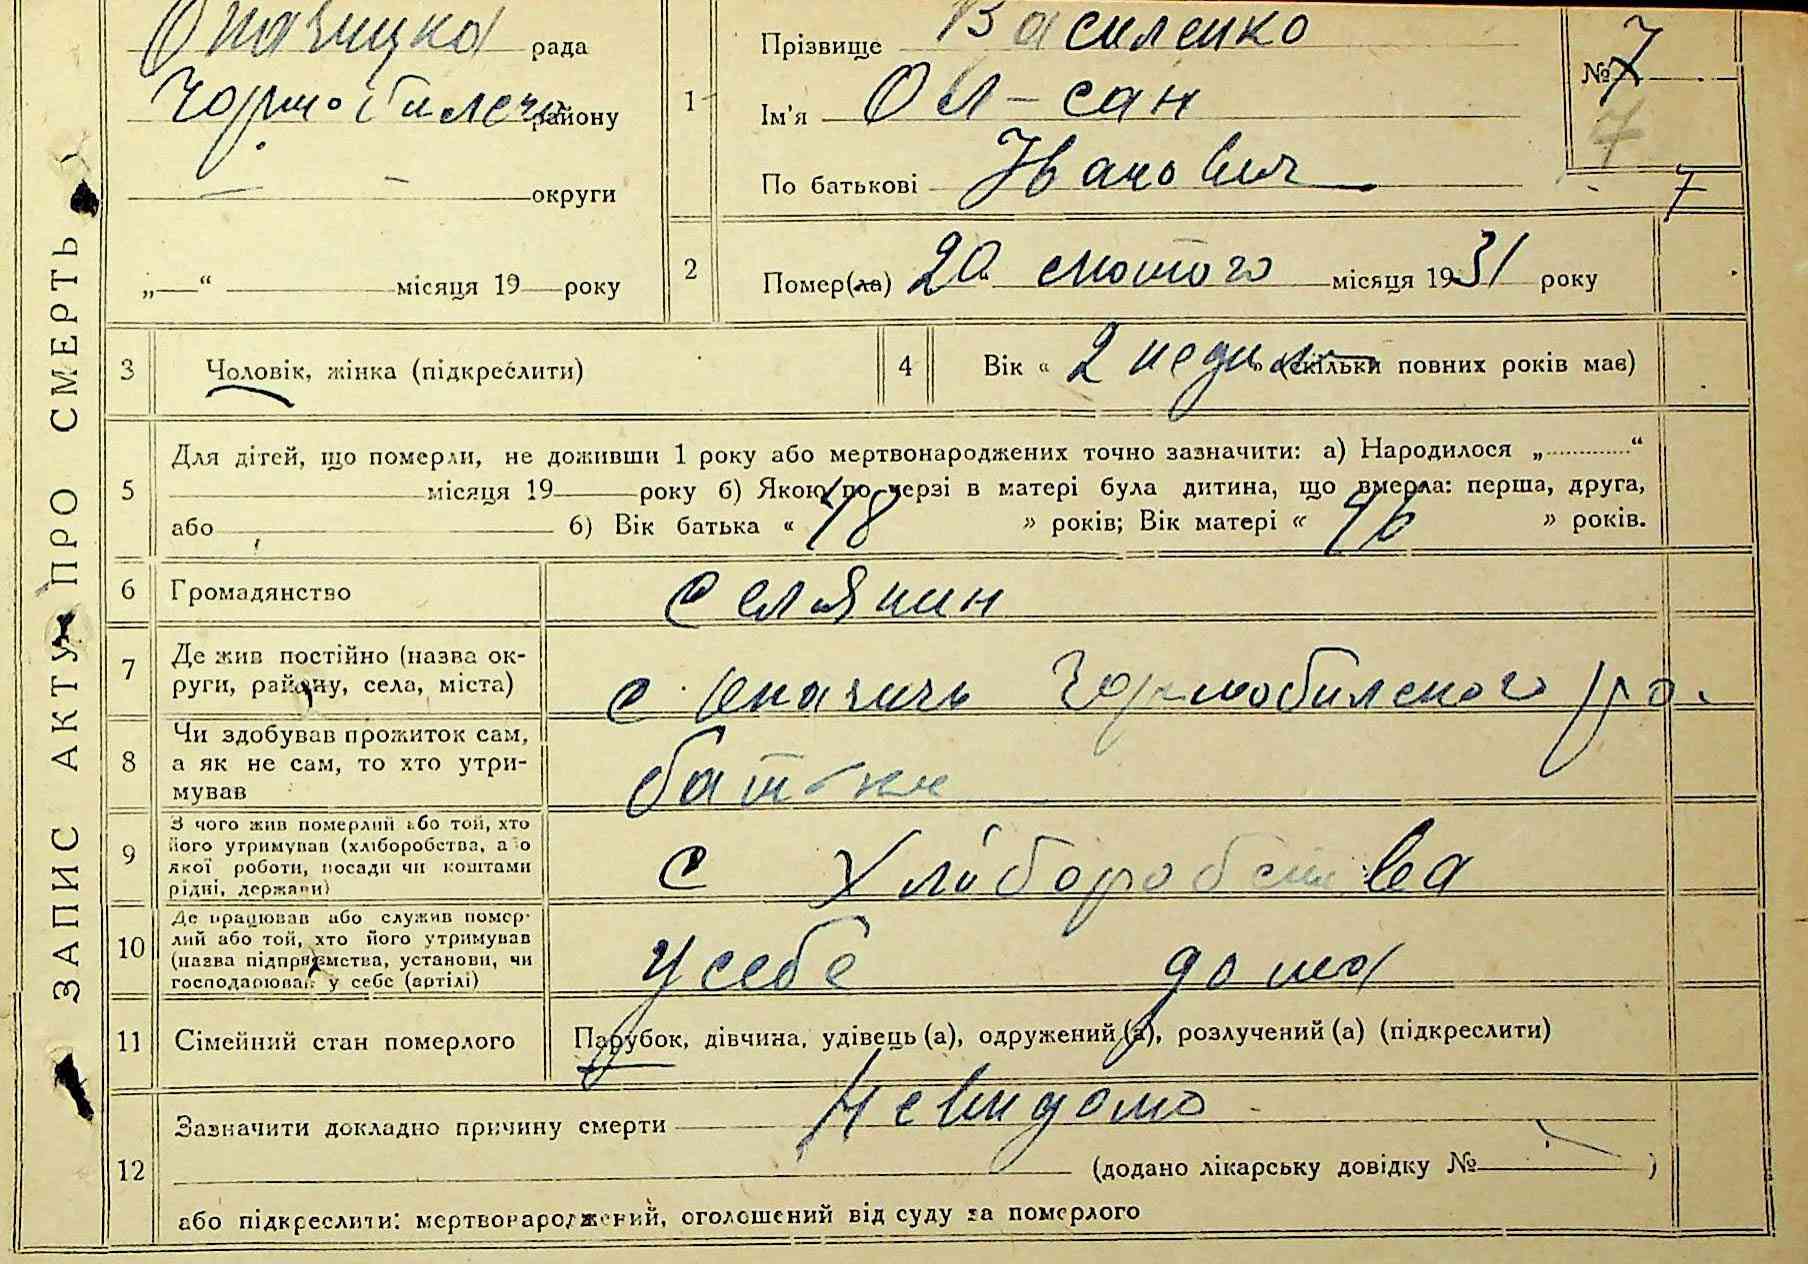 ЗАПИС АКТУ ПРО СМЕРТЬ
Опачицка рада
Чорнобилско району
округи
„—“ місяця 19 року
1 Прізвище Василенко
Ім'я Ол-сан
По батькові Іванович
№ 7
7
7
2 Помер(ла) 20 лютого місяця 1931 року
3 Чоловік, жінка (підкреслити)
4 Вік « 2 неділ » (скільки повних років має)
5 Для дітей, що померли, не доживши 1 року або мертвонароджених точно зазначити: а) Народилося „ “
місяця 19 року б) Якою по черзі в матері була дитина, що вмерла: перша, друга,
або б) Вік батька « 48 » років; Вік матері « 46 » років.
6 Громадянство селянин
7 Де жив постійно (назва ок-
руги, району, села, міста)
с. Опачичь Чорнобилского ра.
8 Чи здобував прожиток сам,
а як не сам, то хто утри-
мував
батьки
9 З чого жив померлий або той, хто
його утримував (хліборобства, або
якої роботи, посади чи коштами
рідні, держави)
с Хліборобства
10 Де працював або служив помер-
лий або той, хто його утримував
(назва підприємства, установи, чи
господарював у себе (артілі)
у себе дома
11 Сімейний стан померлого Парубок, дівчина, удівець (а), одружений (а), розлучений (а) (підкреслити)
12 Зазначити докладно причину смерти Невидомо
(додано лікарську довідку № )
або підкреслити: мертвонароджений, оголошений від суду за померлого